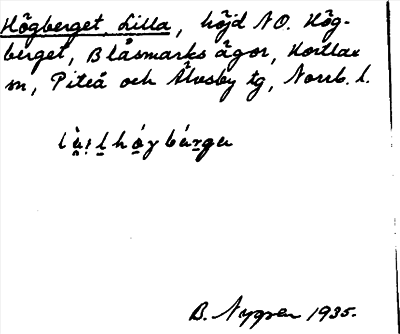 Högberget, Lilla, höjd NO. Hög-
berget, Blåsmarks ägor, Hortlax
sn, Piteå och Älvsby tg, Norrb. l.
B. Nygren 1935.